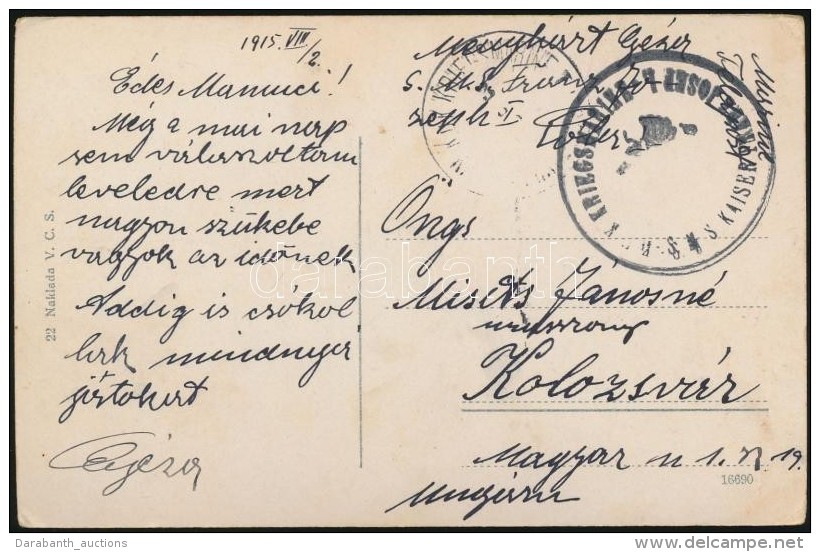 1915. VIII/2.
Édes Mamuci!
Még a mai nap
sem válaszoltam
leveledre mert
nagyon szükebe
vagyok az időnek
Addig is csókol
lak mindnyá
jötokat
Géza
22 Naklada V. C. S.
Menyhárt Géza
S. M. S. Franz Jo
seph I Pola
K. U. K. KRIEGSMARINE
S. M. S. KAISER FRANZ JOSEF I.
Ongs
Misits Jánosné
urasszony
Kolozsvár
Magyar u 1. 19.
Ungarn
16690
darabanth
Darabanth_auctions
delcampe.net